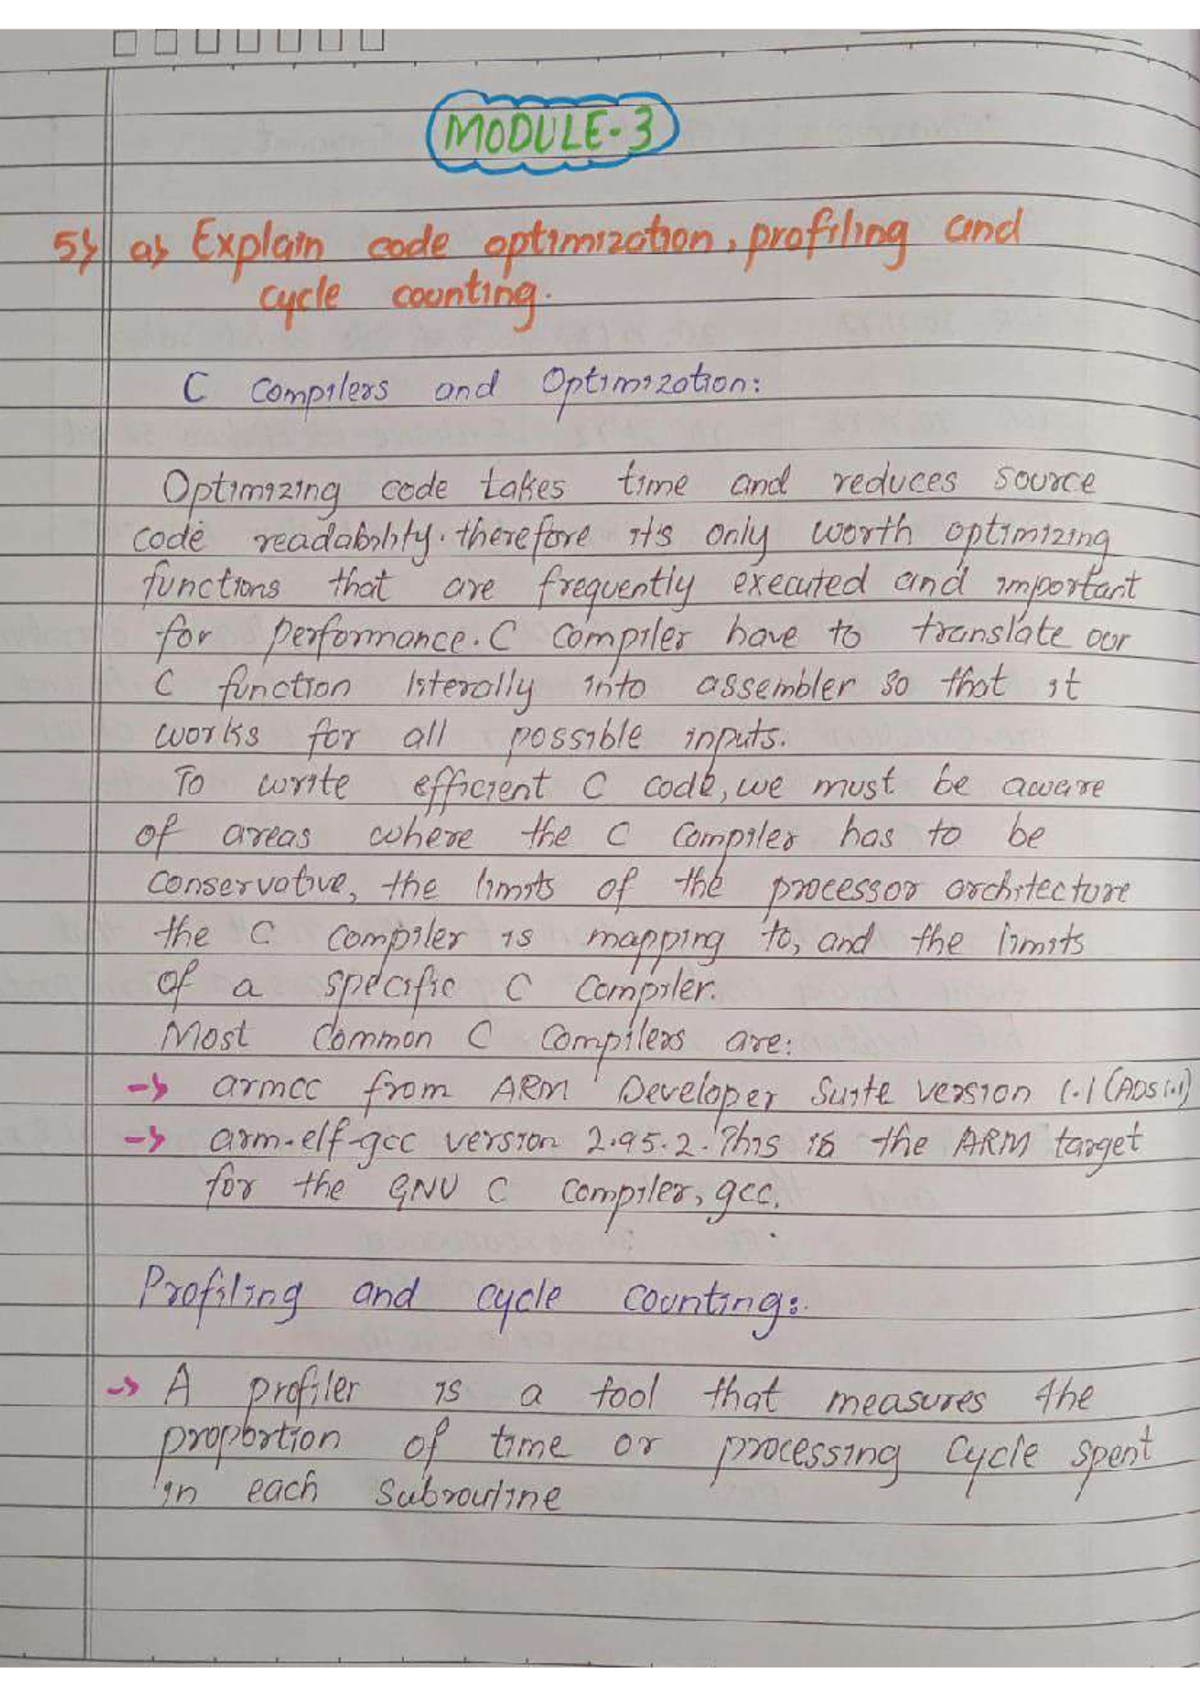 MODULE-3
5) a) Explain code optimization, profiling and
cycle counting.
C Compilers and Optimization:
Optimizing code takes time and reduces source
code readability. therefore it's only worth optimizing
functions that are frequently executed and important
for performance. C Compiler have to translate our
C function literally into assembler so that it
works for all possible inputs.
To write efficient C code, we must be aware
of areas where the C Compiler has to be
conservative, the limits of the processor architecture
the C Compiler is mapping to, and the limits
of a specific C Compiler.
Most Common C Compilers are:
→ armcc from ARM Developer Suite version 1.1 (ADS1.1)
→ arm-elf-gcc version 2.95.2. This is the ARM target
for the GNU C Compiler, gcc.
Profiling and cycle counting:
→ A profiler is a tool that measures the
proportion of time or processing Cycle spent
in each subroutine